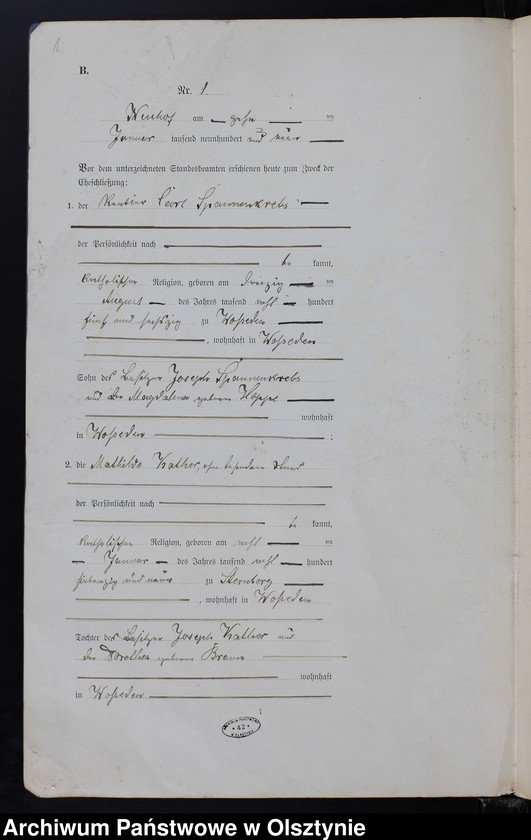 1
B.
Nr. 1.
Neuhof am zehn ten
Januar tausend neunhundert und neun
Vor dem unterzeichneten Standesbeamten erschienen heute zum Zweck der
Eheschließung:
1. der Rentier Carl Spannenkrebs
der Persönlichkeit nach
be kannt,
katholischer Religion, geboren am dreizig ten
August des Jahres tausend acht hundert
fünf und sechzig zu Wosseden
, wohnhaft in Wosseden
Sohn des Besitzer Joseph Spannenkrebs
und der Magdalena geborene Hoppe
wohnhaft
in Wosseden ;
2. die Mathilde Kather, ohne besonderen Stand
der Persönlichkeit nach
be kannt,
katholischer Religion, geboren am acht ten
Januar des Jahres tausend acht hundert
siebenzig und neun zu Sternberg
, wohnhaft in Wosseden
Tochter des Besitzer Joseph Kather und
der Dorothea geborene Braun
wohnhaft
in Wosseden
42
Archiwum Państwowe w Olsztynie